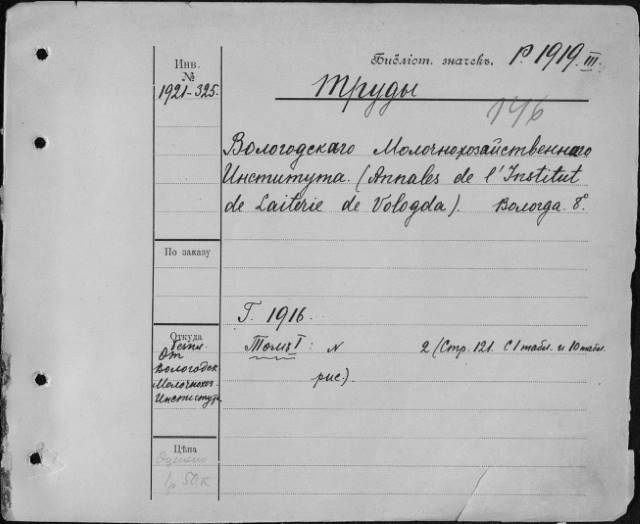 Инв.
№
1921-325.
Библіот. значекъ. Р 1919. III.
Труды
146
Вологодскаго Молочнохозяйственнаго
Института. (Annales de l'Institut
de Laiterie de Vologda). Вологда. 8°.
По заказу
Г. 1916.
Откуда
От
Вологодск
Молочнохоз
Института
Томъ I: N 2 (Стр. 121. С 1 табл. и 10 табл.
рис.).
Цѣна
Оценено
1р 50к